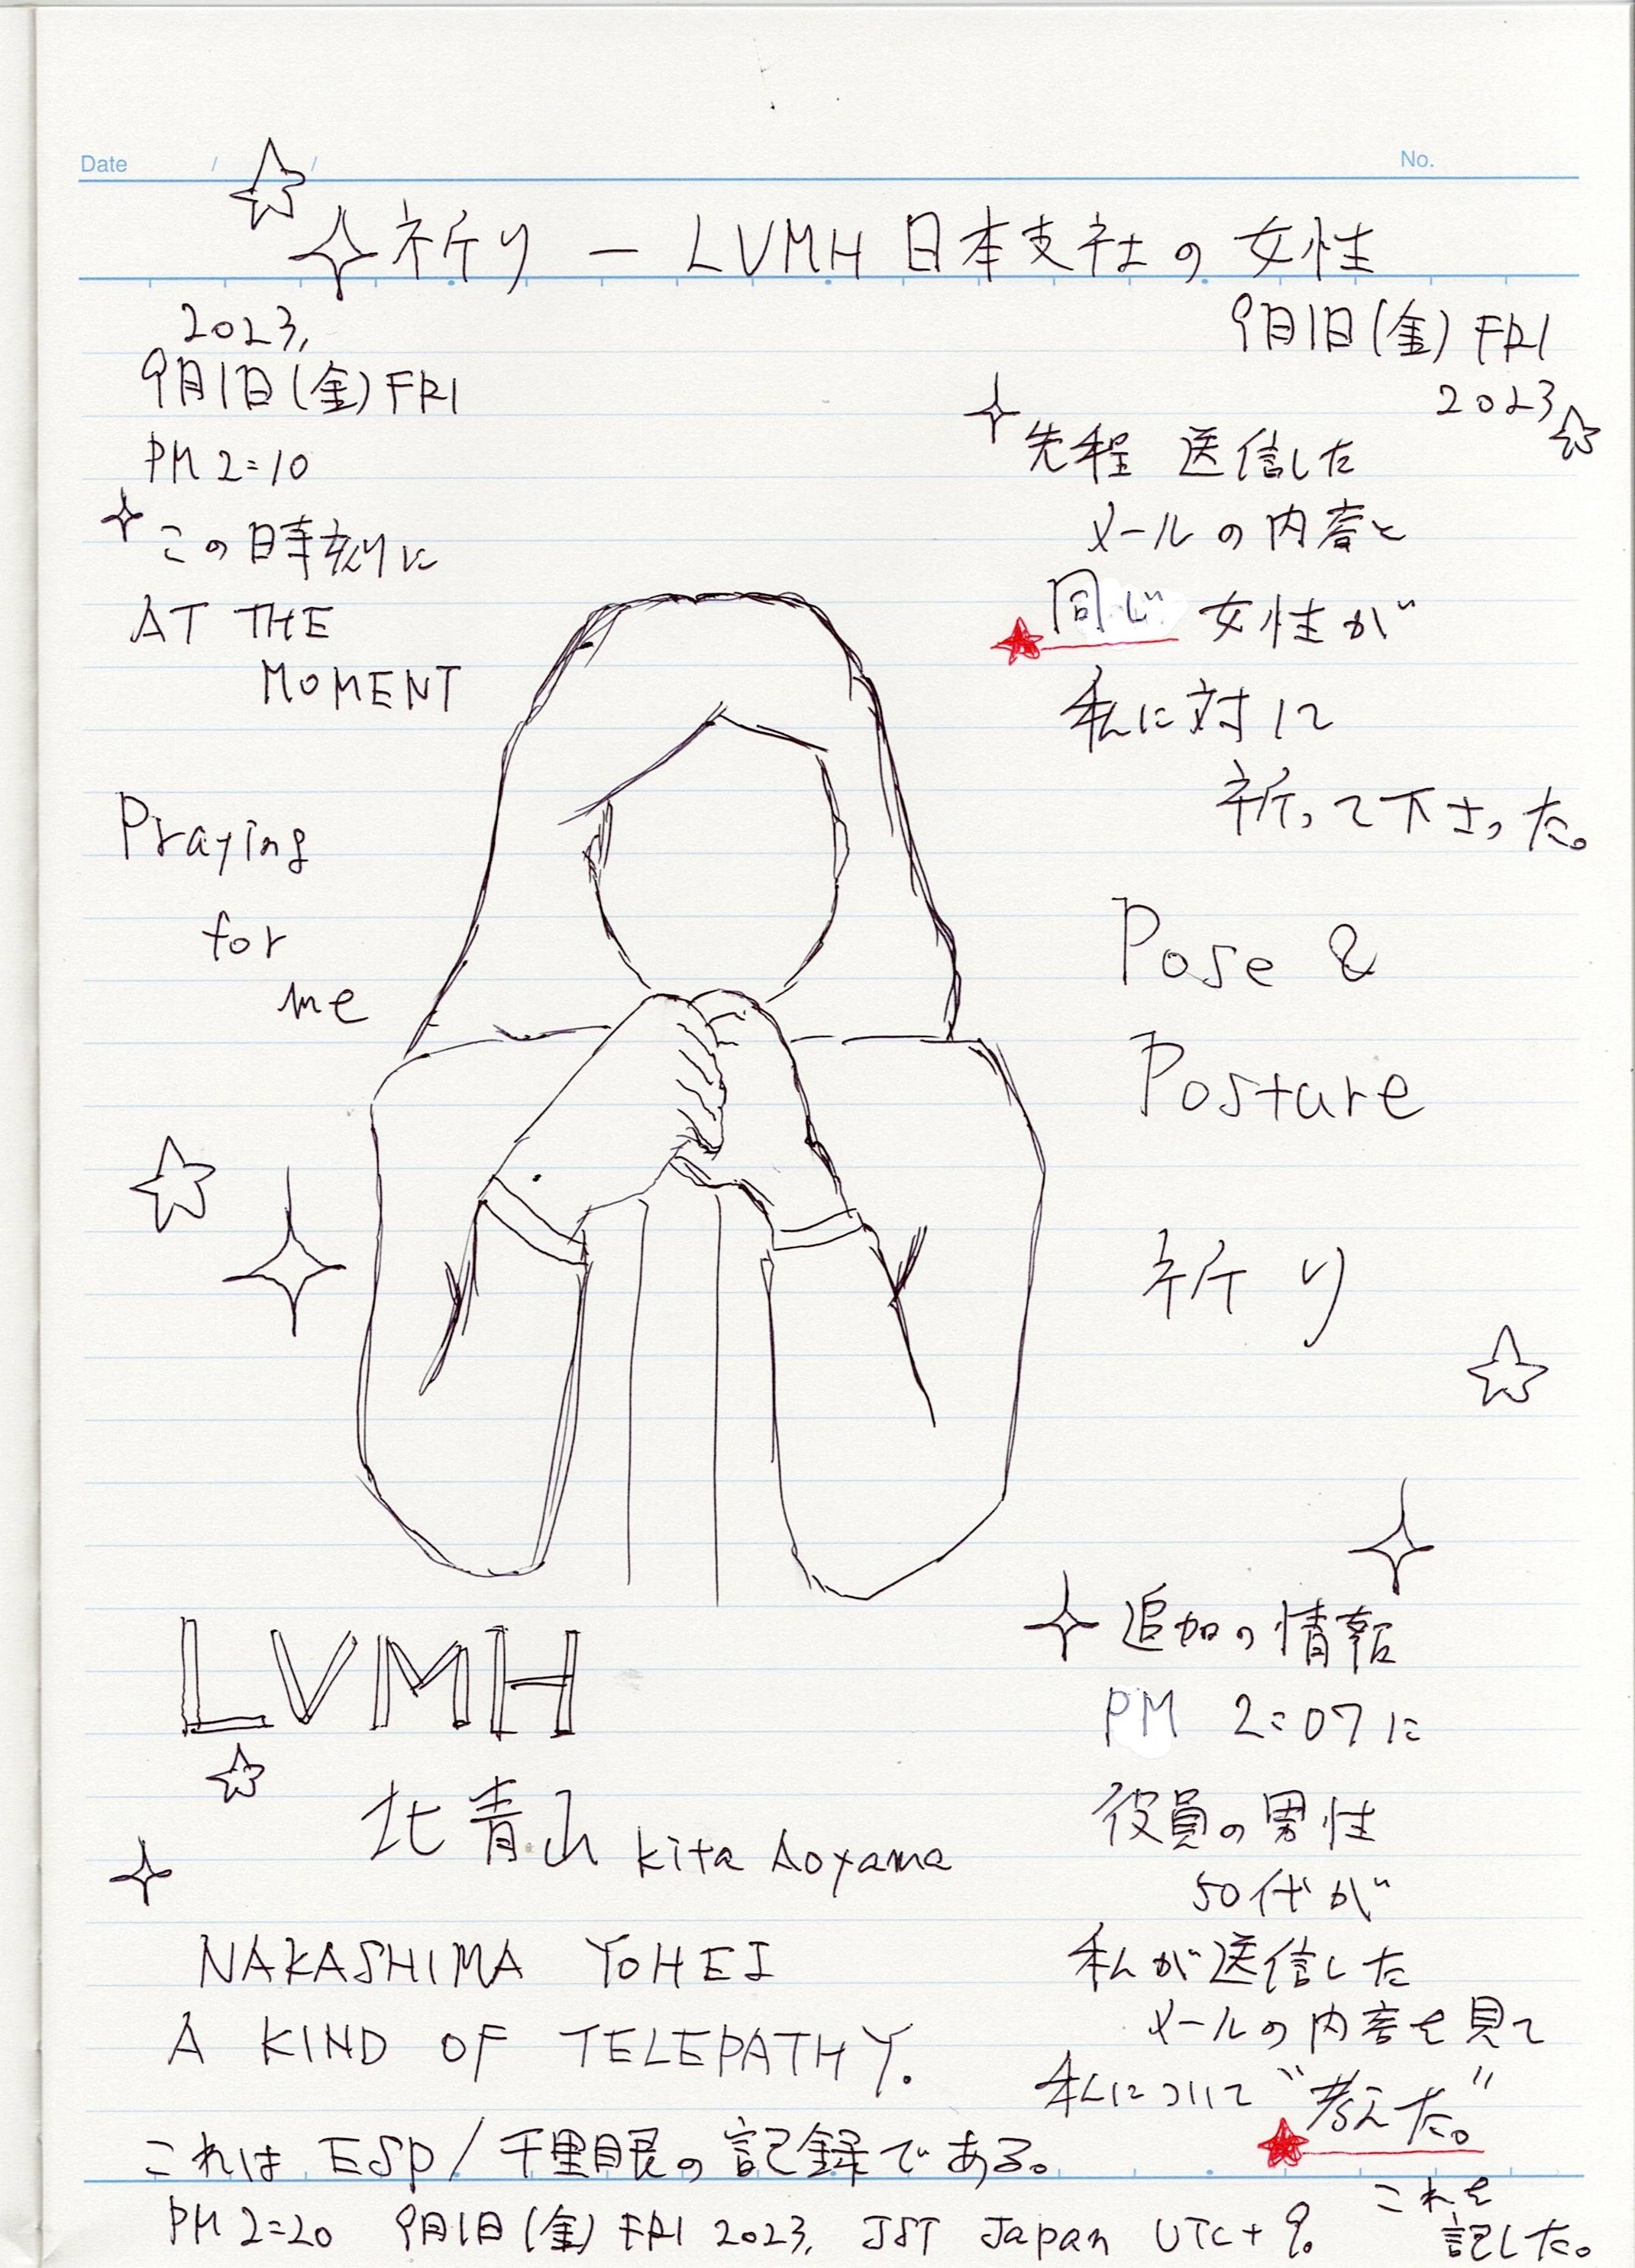 Date / /
No.
祈り — LVMH 日本支社の女性
2023,
9月1日(金)FRI
PM 2:10
この時刻に
AT THE
MOMENT
Praying
for
me
9月1日(金) FRI
2023
先程 送信した
メールの内容と
同じ 女性が
私に対して
祈って下さった。
Pose &
Posture
祈り
LVMH
北青山 Kita Aoyama
NAKASHIMA YOHEI
A KIND OF TELEPATHY.
追加の情報
PM 2:07に
役員の男性
50代が
私が送信した
メールの内容を見て
私について "考えた。"
これを
記した。
これは ESP/千里眼の記録である。
PM 2:20 9月1日(金) FRI 2023, JST Japan UTC+9.